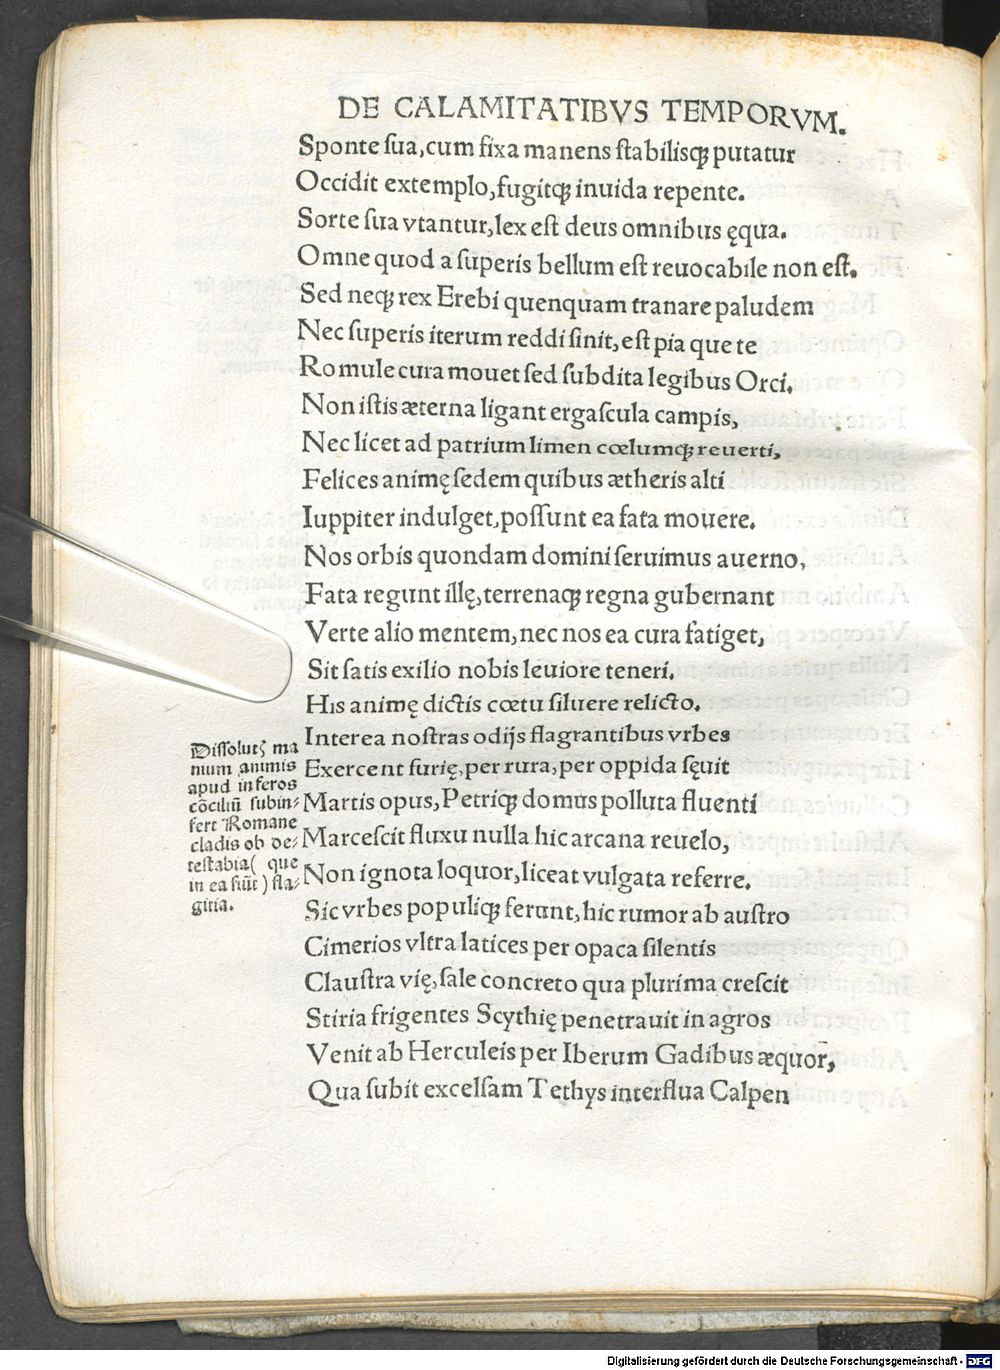 DE CALAMITATIBVS TEMPORVM.
Sponte ſua,cum fixa manens ſtabilisqꝫ putatur
Occidit extemplo,fugitqꝫ inuida repente.
Sorte ſua vtantur,lex eſt deus omnibus ęqua.
Omne quod a ſuperis bellum eſt reuocabile non eſt.
Sed neqꝫ rex Erebi quenquam tranare paludem
Nec ſuperis iterum reddi ſinit, eſt pia que te
Romule cura mouet ſed ſubdita legibus Orci.
Non iſtis æterna ligant ergaſcula campis,
Nec licet ad patrium limen cœlumqꝫ reuerti,
Felices animę ſedem quibus ætheris alti
Iuppiter indulget,poſſunt ea fata mouere.
Nos orbis quondam domini ſeruimus auerno,
Fata regunt illę,terrenaqꝫ regna gubernant
Verte alio mentem,nec nos ea cura fatiget,
Sit ſatis exilio nobis leuiore teneri.
His animę dictis cœtu ſiluere relicto.
Interea noſtras odijs flagrantibus vrbes
Exercent furię,per rura,per oppida ſęuit
Martis opus,Petriqꝫ domus polluta fluenti
Marceſcit fluxu nulla hic arcana reuelo,
Non ignota loquor,liceat vulgata referre.
Sic vrbes populiqꝫ ferunt,hic rumor ab auſtro
Cimerios vltra latices per opaca ſilentis
Clauſtra vię,ſale concreto qua plurima creſcit
Stiria frigentes Scythię penetrauit in agros
Venit ab Herculeis per Iberum Gadibus æquor,
Qua ſubit excelſam Tethys interflua Calpen
Diſſolutꝫ ma
nium animis
apud inferos
cōciliū ſubin⸗
fert Romane
cladis ob de⸗
teſtabia( que
in ea ſiūt) fla⸗
gitia.
Digitalisierung gefördert durch die Deutsche Forschungsgemeinschaft - DFG